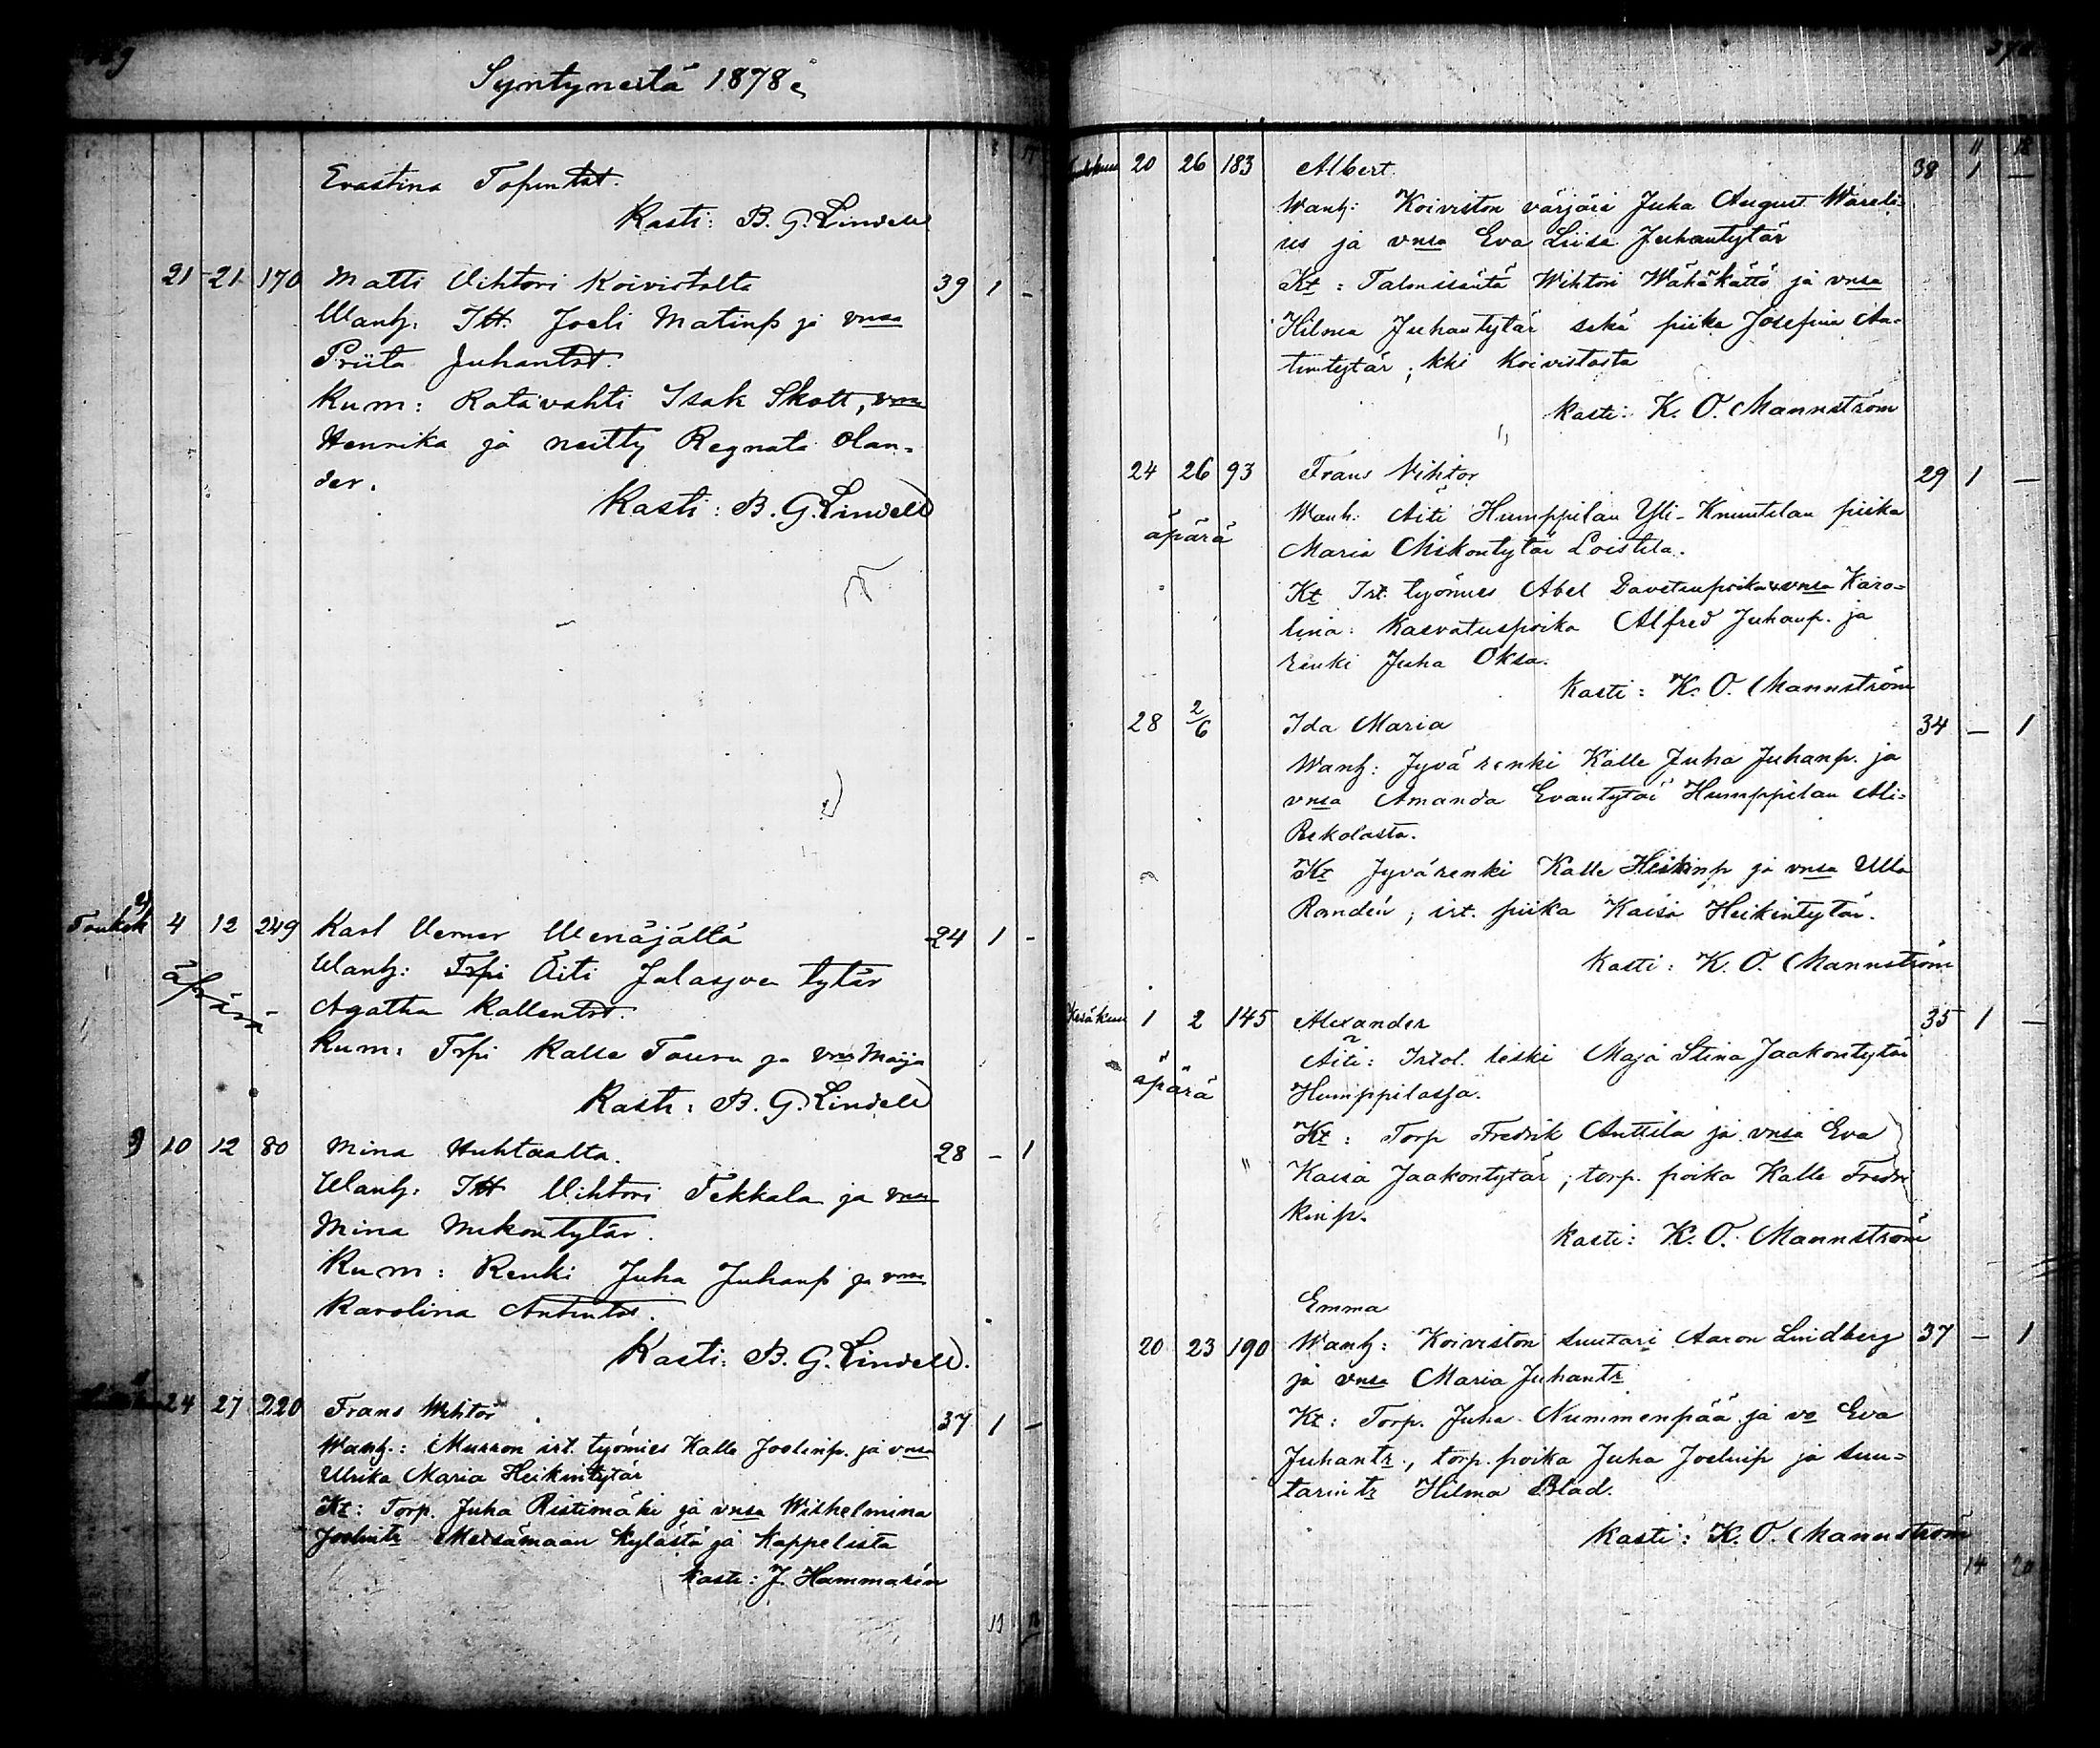 Syntyneitä 1878
Evastina Topintrt.
Kasti: B. G. Lindell
21 21 170 Matti Vihtori Koivistolta 39 1 -
Wanh: Itt. Joeli Matinp ja vnsa
Priita Juhantrt.
Kum: Ratavahti Isak Skott, vm
Henrika ja neitty Regnata Olan-
der.
Kasti: B. G. Lindell
Toukok 4 12 249 Karl Verner Venäjältä 24 1 -
äpärä
Wanh: Trpi Äiti Jalasjoen tytär
Agatha Kallentrt.
Kum: Trpi Kalle Touru ja vm Maija
Kasti: B. G. Lindell
9 10 12 80 Mina Huhtaalta. 28 - 1
Wanh: Itt Vihtori Tekkala ja vm
Mina Mikontytär.
Kum: Renki Juha Juhanp ja vm
Karolina Antintrt.
Kasti: B. G. Lindell.
24 27 220 Frans Wihtor 37 1 -
Wanh: Murron irt. työmies Kalle Joelinp. ja vnsa
Ulrika Maria Heikintytär
Kt: Torp. Juha Ristimäki ja vnsa Wilhelmina
Joelintr Metsämaan kylästä ja kappelista
Kasti: J. Hammarén
11 18
Toukokuu 20 26 183 Albert. 38 1 -
Wanh: Koiviston värjäri Juha August Wareli-
us ja vnsa Eva Liisa Juhantytär
Kt: Talonisäntä Wihtori Wähäkättö ja vnsa
Hilma Juhantytär sekä piika Josefina An-
tintytär; kki Koivistosta
Kasti: K. O. Mannström
24 26 93 Frans Vihtor 29 1 -
äpärä
Wanh: Äiti Humppilan Yli-Knuutilan piika
Maria Mikontytär Loistela.
Kt Irt. työmies Abel Davetinpoika & vnsa Karo-
lina: Kasvatuspoika Alfred Juhanp. ja
renki Juha Oksa.
Kasti: K. O. Mannström
28 2/6 Ida Maria 34 - 1
Wanh: Jyvä renki Kalle Juha Juhanp. ja
vnsa Amanda Evantytär Humppilan Ali-
Rekolasta.
Kt Jyvärenki Kalle Heikinp ja vnsa Ulla
Ramdén; irt. piika Kaisa Heikintytär.
Kasti: K. O. Mannström
Kesäkuu 1 2 145 Alexander 35 1 -
äpärä
Äiti: Irtol. leski Maja Stina Jaakontytär
Humppilassa.
Kt: Torp Fredrik Anttila ja vnsa Eva
Kaisa Jaakontytär; torp. poika Kalle Fredri
kinp.
Kasti: K. O. Mannström
Emma
20 23 190 Wanh: Koiviston suutari Aaron Lindberg 37 - 1
ja vnsa Maria Juhantr
Kt: Torp. Juha Nummenpää ja vo Eva
Juhantr., torp. poika Juha Joelinp ja suu-
tarin tr Hilma Blad.
Kasti: K. O. Mannström
14 20